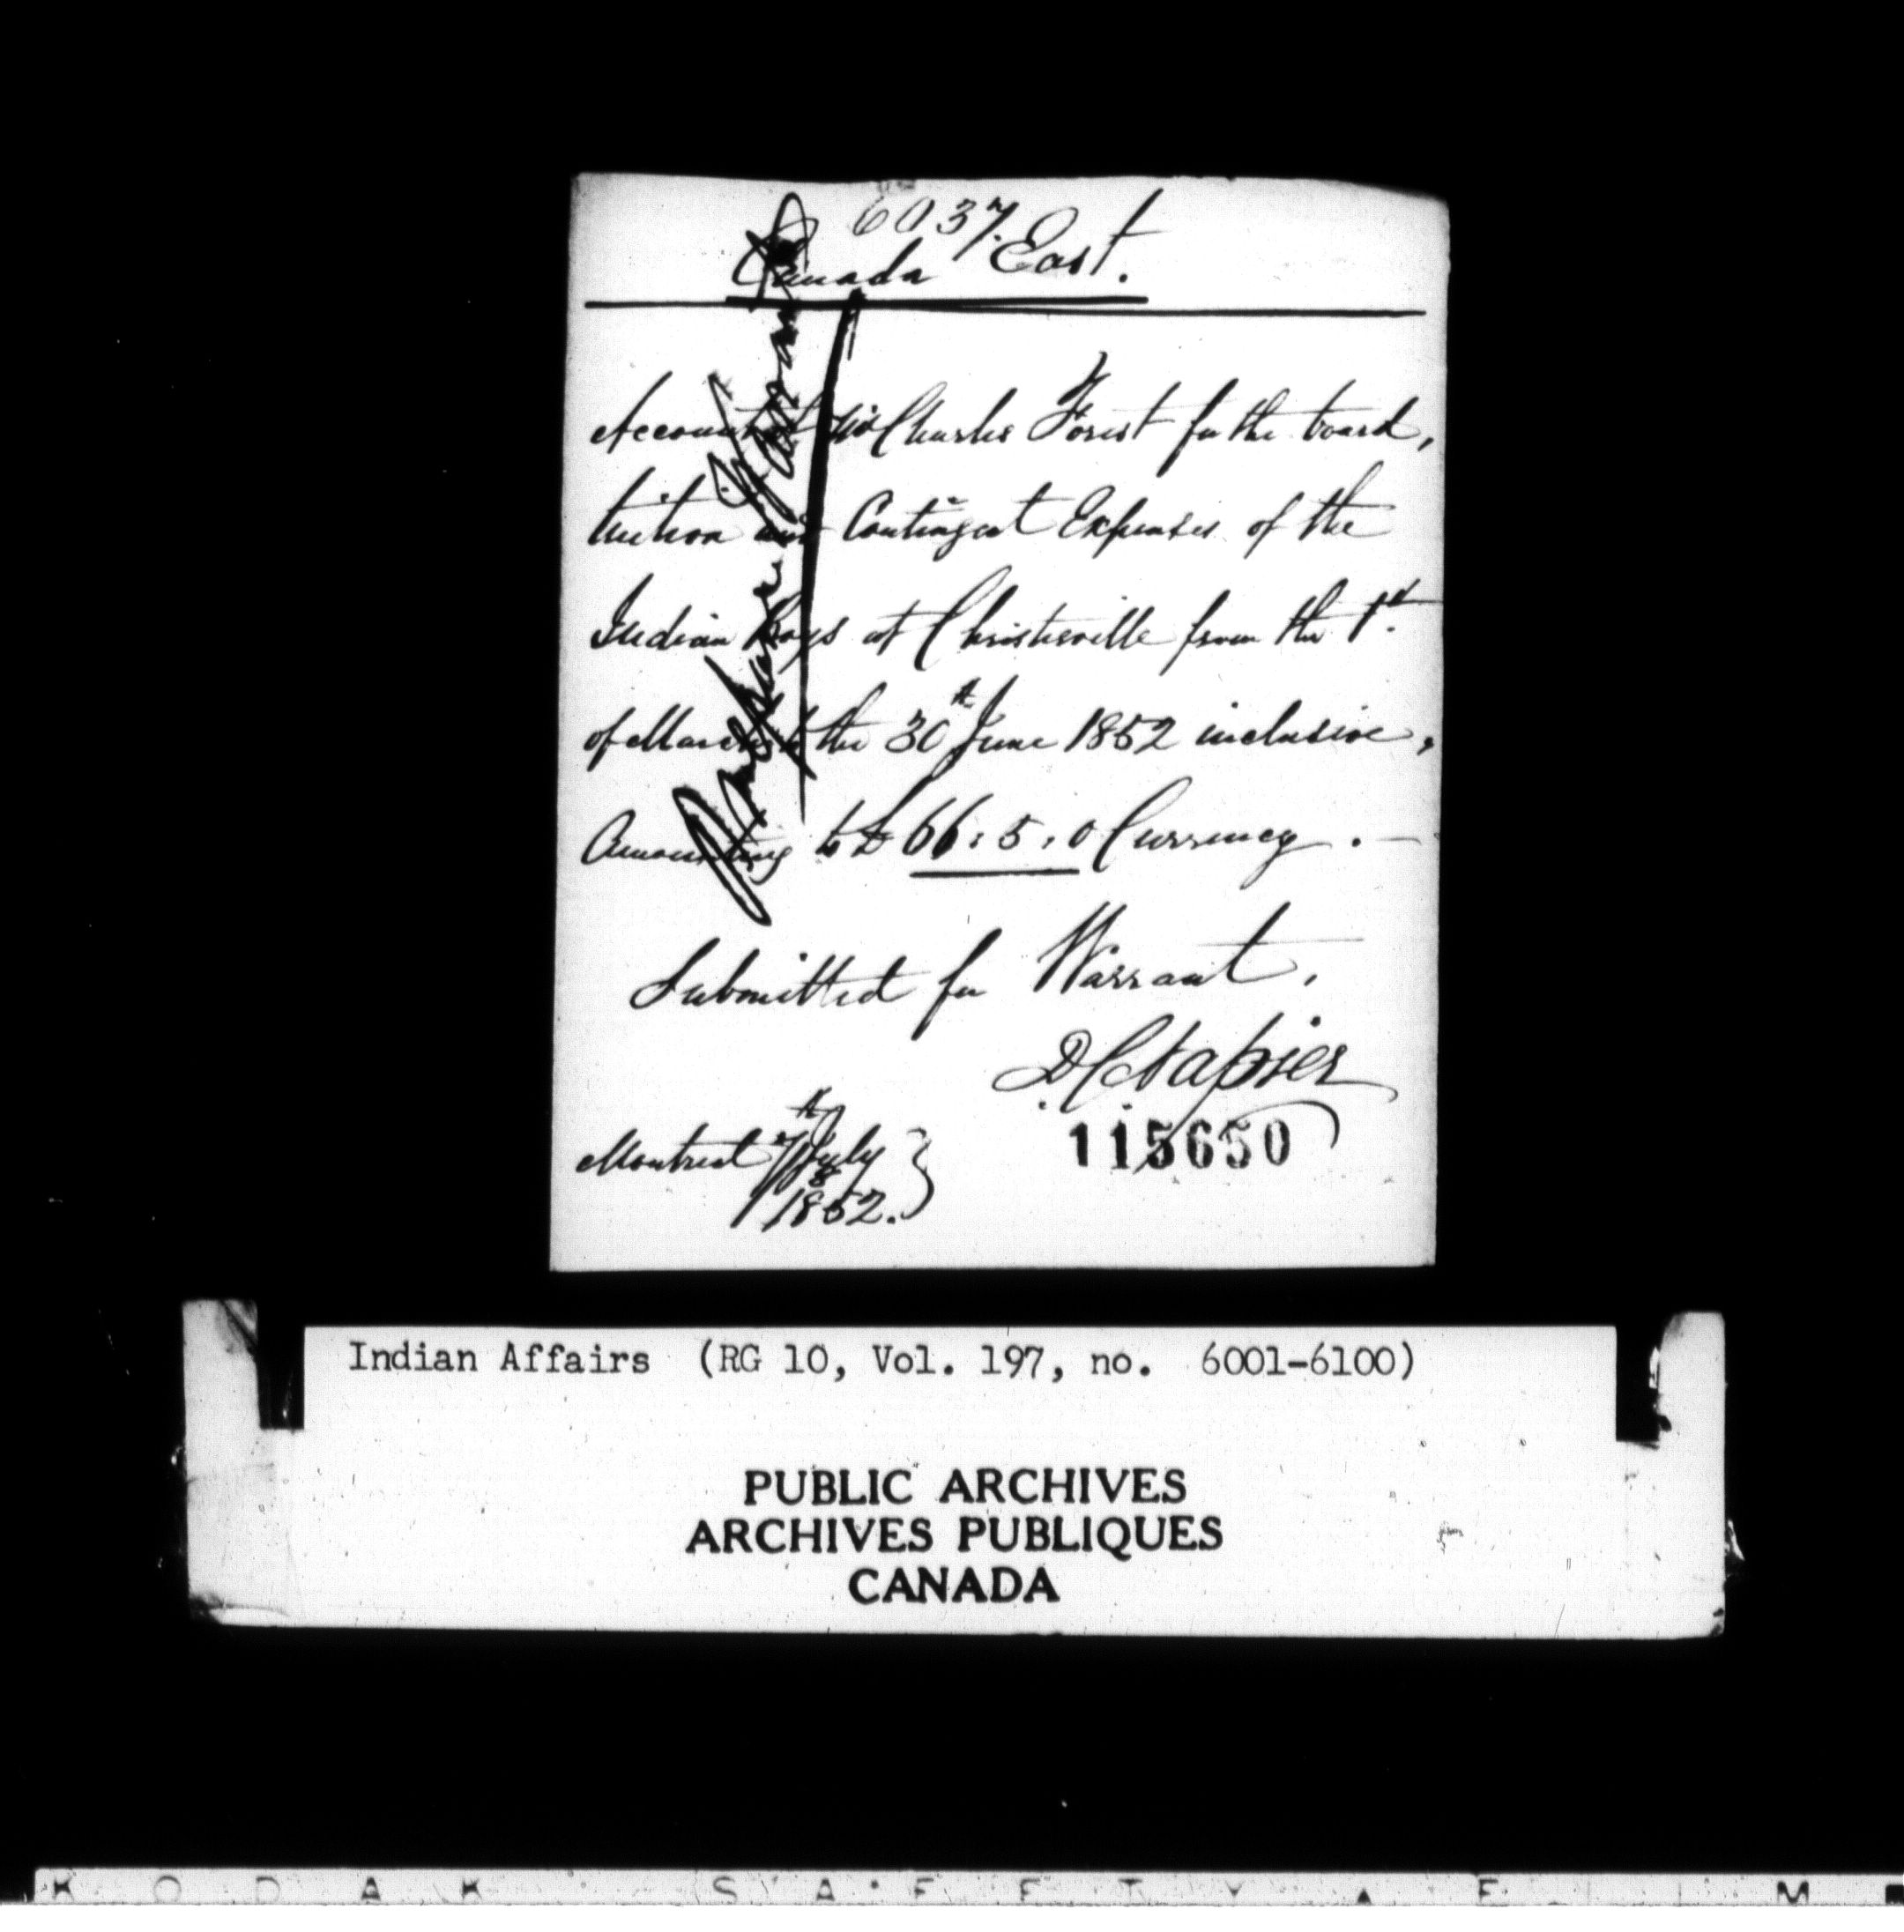 6037.
Canada East.
Account of Mr Charles Forest for the board,
tuition and Contingent Expenses of the
Indian Boys at Christieville from the 1st.
of March to the 30th June 1852 inclusive,
Amounting to £66:5:0 Currency. —
Submitted for Warrant.
D C Napier
Montreal 7th July
1852.
115650
Indian Affairs (RG 10, Vol. 197, no. 6001-6100)
PUBLIC ARCHIVES
ARCHIVES PUBLIQUES
CANADA
KODAK SAFETY FILM